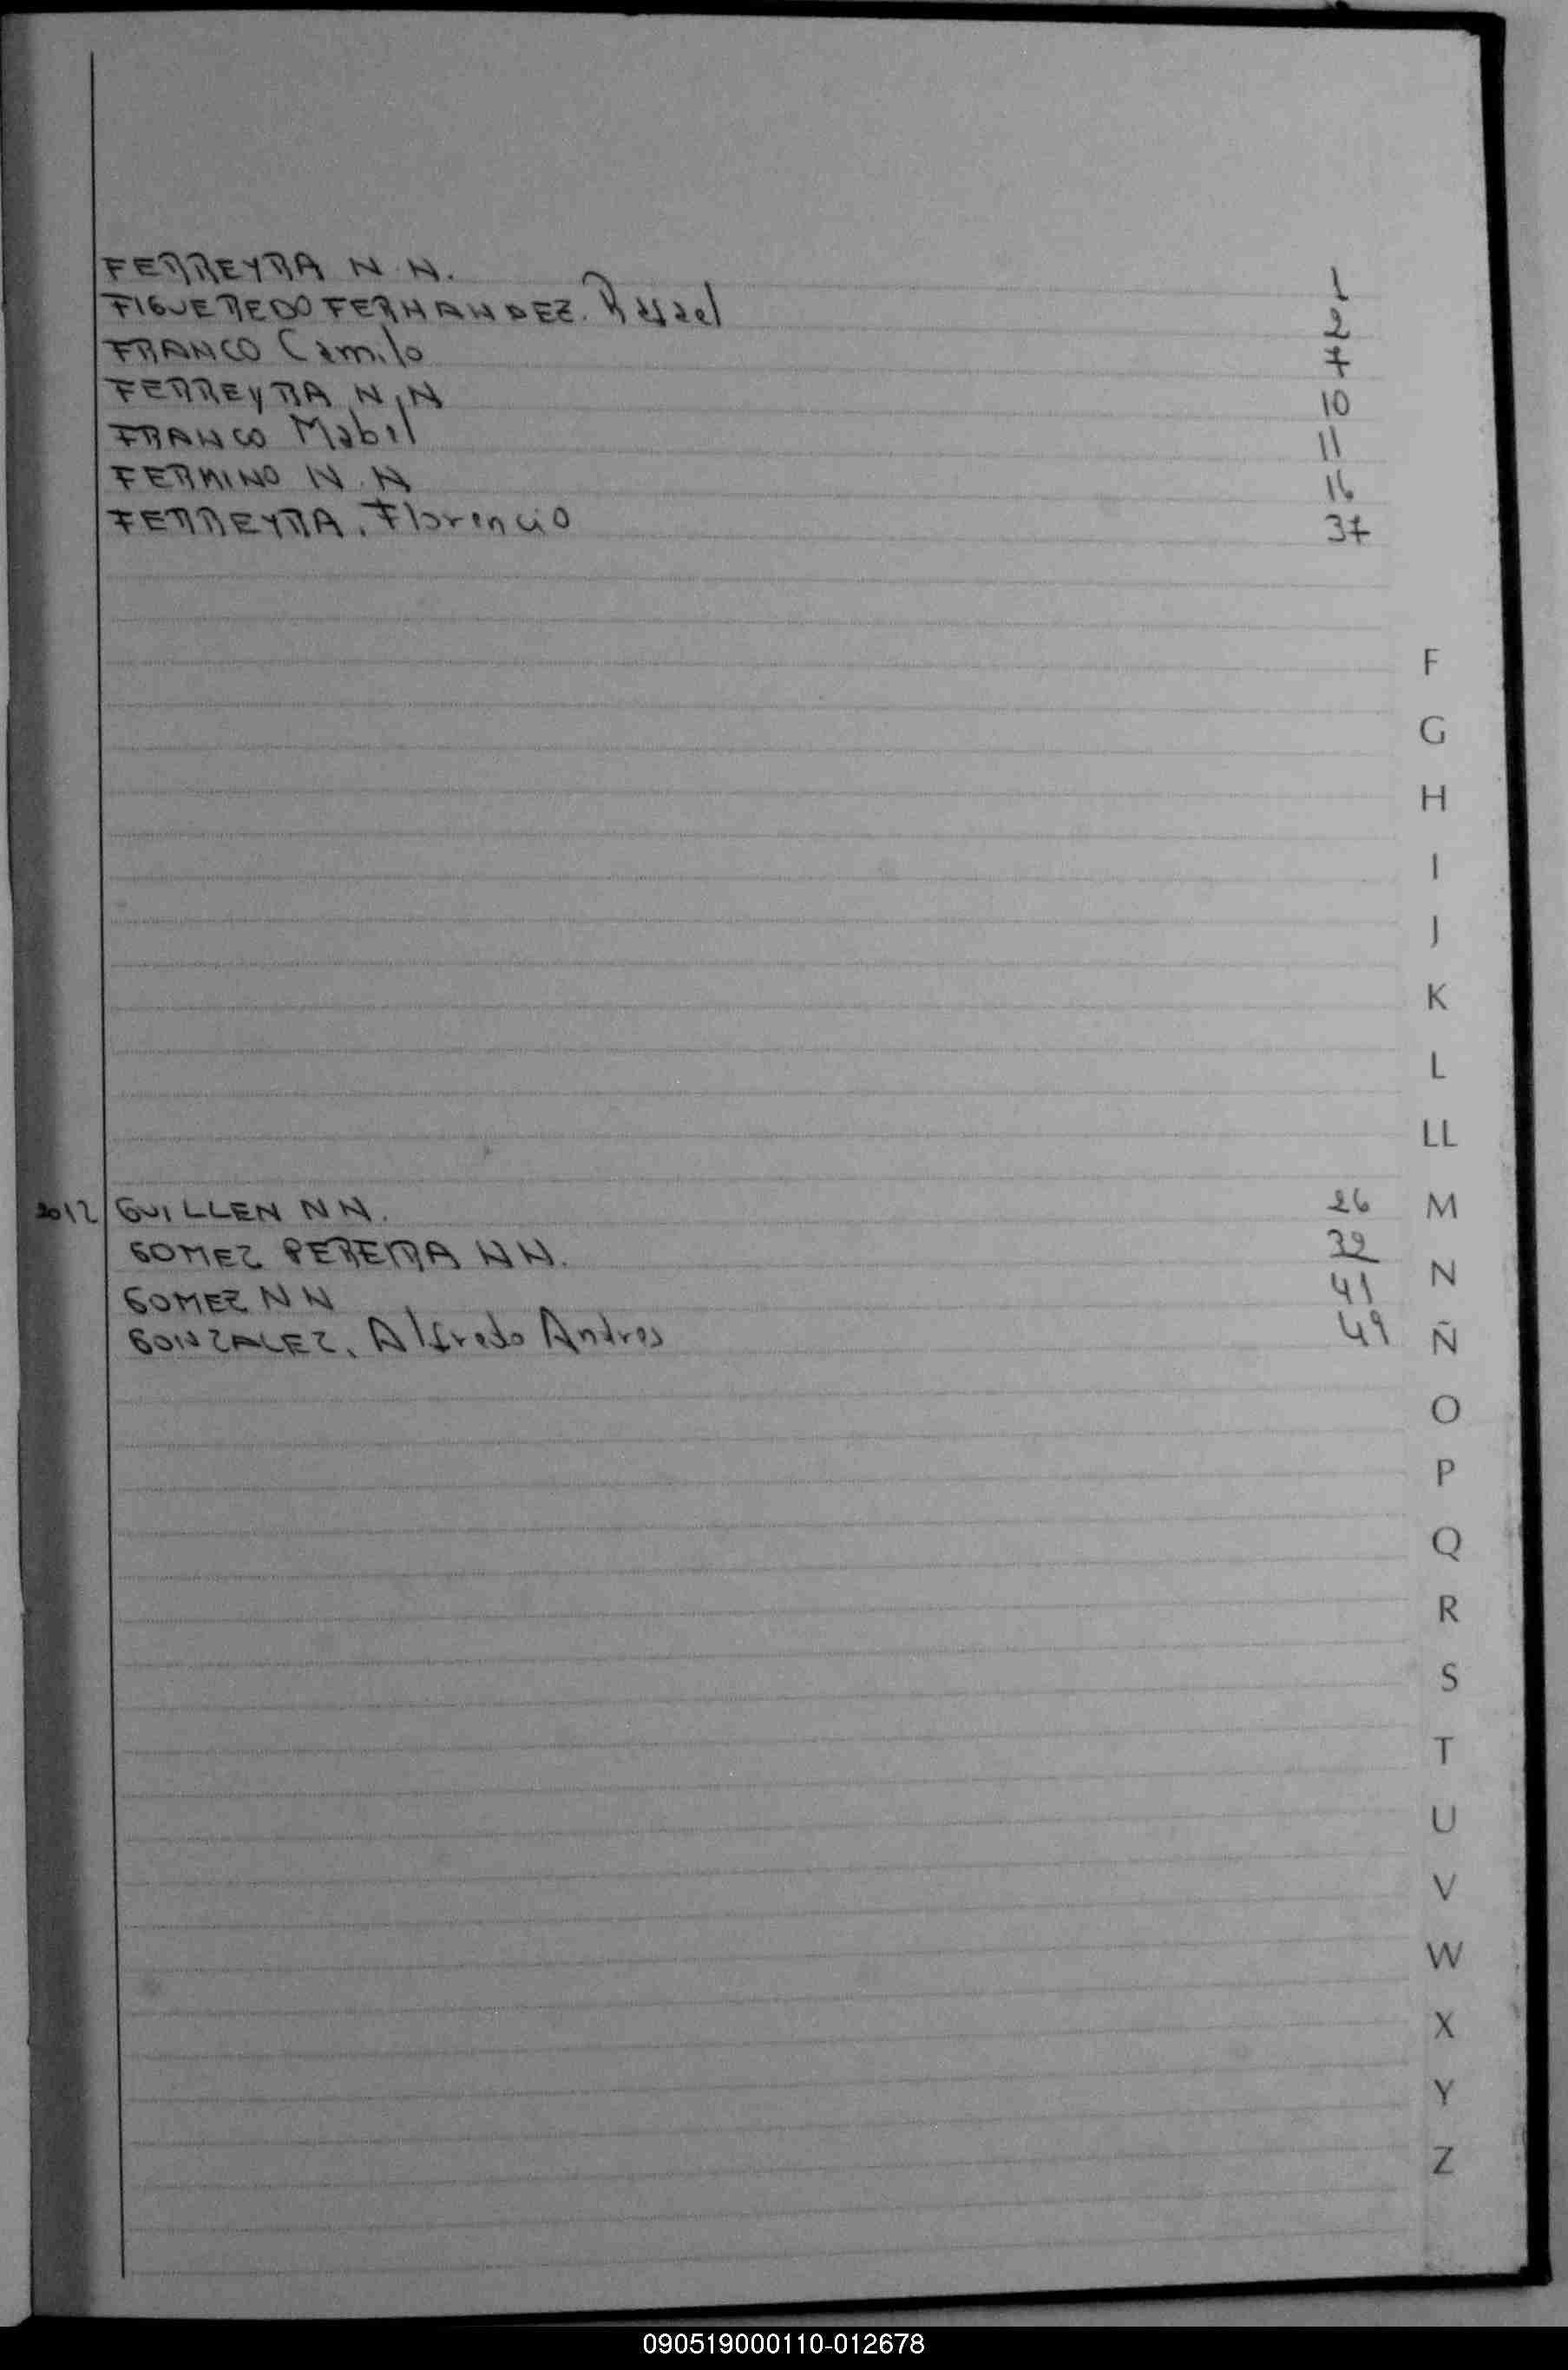 FERREYRA N.N. 1
FIGUEREDO FERNANDEZ. Rafael 2
FRANCO Camilo 7
FERREYRA N.N 10
FRANCO Mabel 11
FERMINO N.N 16
FERREYRA. Florencio 37
F
G
H
I
J
K
L
LL
2012 GUILLEN NN. 26 M
GOMEZ PEREIRA NN. 39
N
GOMEZ NN 41
GONZALEZ. Alfredo Andres 49 Ñ
O
P
Q
R
S
T
U
V
W
X
Y
Z
090519000110-012678